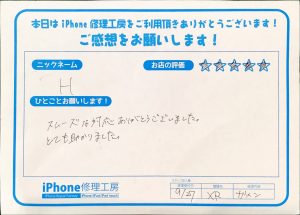 本日は iPhone 修理工房をご利用頂きありがとうございます！
ご感想をお願いします！
ニックネーム
お店の評価
H
ひとことお願いします！
スムーズな対応ありがとうございました。
とても助かりました。
iPhone修理工房
9/27 XR ガメン